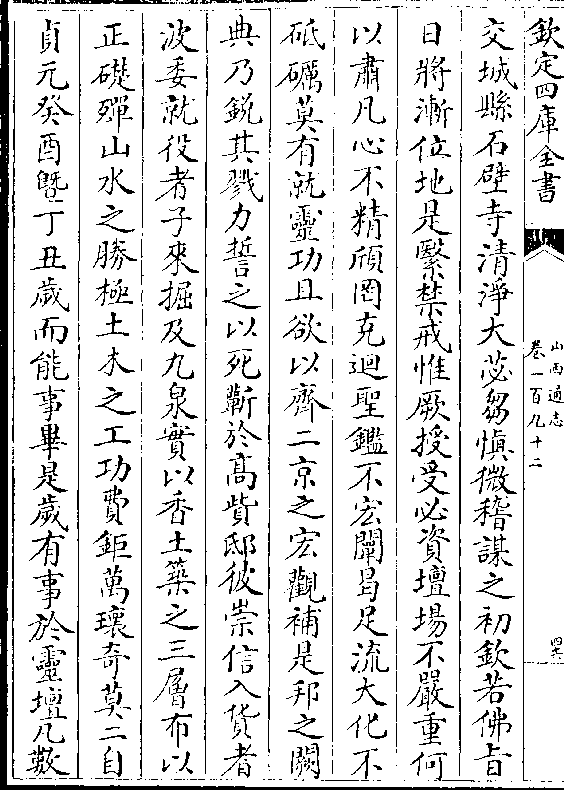 欽定四庫全書
山西通志
卷一百九十二
四七
交城縣石壁寺清淨大苾芻慎微稽謀之初欽若佛旨
日將漸位地是繫禁戒惟厥授受必資壇場不嚴重何
以肅凡心不精頎罔克迴聖鑑不宏闡曷足流大化不
砥礪莫有就靈功且欲以齊二京之宏觀補是邦之闕
典乃銳其戮力誓之以死蘄於髙貲邸彼崇信入貨者
波委就役者子來掘及九泉實以香土築之三層布以
正礎殫山水之勝極土木之工功費鉅萬瓌奇莫二自
貞元癸酉曁丁丑歲而能事畢是歲有事於靈壇凡數